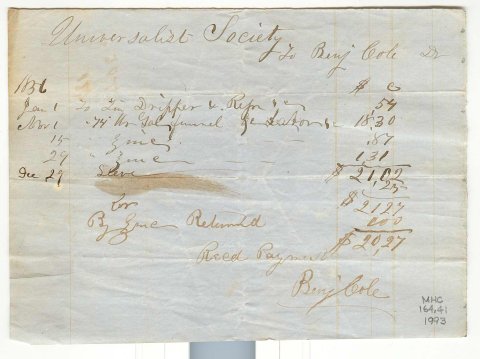 Universalist Society
To Benj Cole Dr
1856 $ c
Jan 1 To Tin Dripper & Repr .54
Nov 1 " 74 18.30
15 " Zinc .87
29 " Zinc 1,31
Dec 29 $ 21,02
,25
$ 21,27
Cr
By Zinc Returned
$ 20,27
Recd Payment
Benj Cole
MHC
164.41
1993